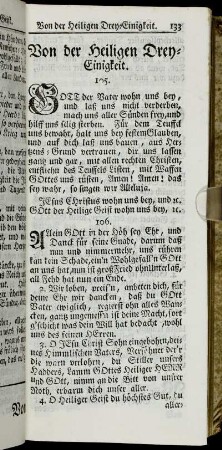 Von der Heiligen Drey-Einigkeit. 133
Von der Heiligen Drey-
Einigkeit.
105.
GOTT der Vater wohn uns bey,
und laß uns nicht verderben,
mach uns aller Sünden frey, und
hilf uns selig sterben. Für dem Teuffel
uns bewahr, halt uns bey festem Glauben,
und auf dich laß uns bauen, aus Her-
zens-Grund vertrauen, dir uns lassen
ganz und gar, mit allen rechten Christen,
entfliehn des Teuffels Listen, mit Waffen
GOttes uns rüsten, Amen! Amen! daß
sey wahr, so singen wir Alleluja.
JEsus Christus wohn uns bey, und ꝛc.
GOtt der Heilige Geist wohn uns bey, ꝛc.
106.
Allein GOtt in der Höh sey Ehr, und
Danck für seine Gnade, darum daß
nun und nimmermehr, uns rühren
kan kein Schade, ein'n Wohlgefall'n GOtt
an uns hat, nun ist groß Fried ohn Unterlaß,
all Fehd hat nun ein Ende.
2. Wir loben, preis'n, anbeten dich, für
deine Ehr wir dancken, daß du GOtt
Vater ewiglich, regierst ohn alles Wan-
cken, ganz ungemessen ist deine Macht, fort
g'schicht was dein Will hat bedacht, wohl
uns des feinen HErren.
3. O JEsu Christ Sohn eingebohrn, dei-
nes Himmlischen Vaters, Versöhner der'r
die warn verlohrn, du Stiller unsers
Hadders, Lamm Gottes Heiliger HERR
und GOtt, nimm an die Bitt von unser
Noth, erbarm dich unser aller.
4. O Heiliger Geist du höchstes Gut, du
aller-